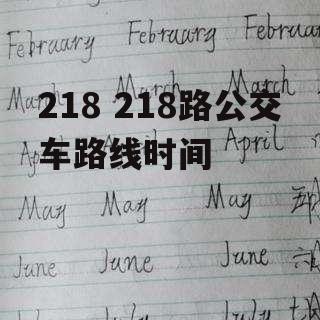 February February February
March March March
218 218路公交
April April April
车路线时间
May May May 五
June June June 六
July July